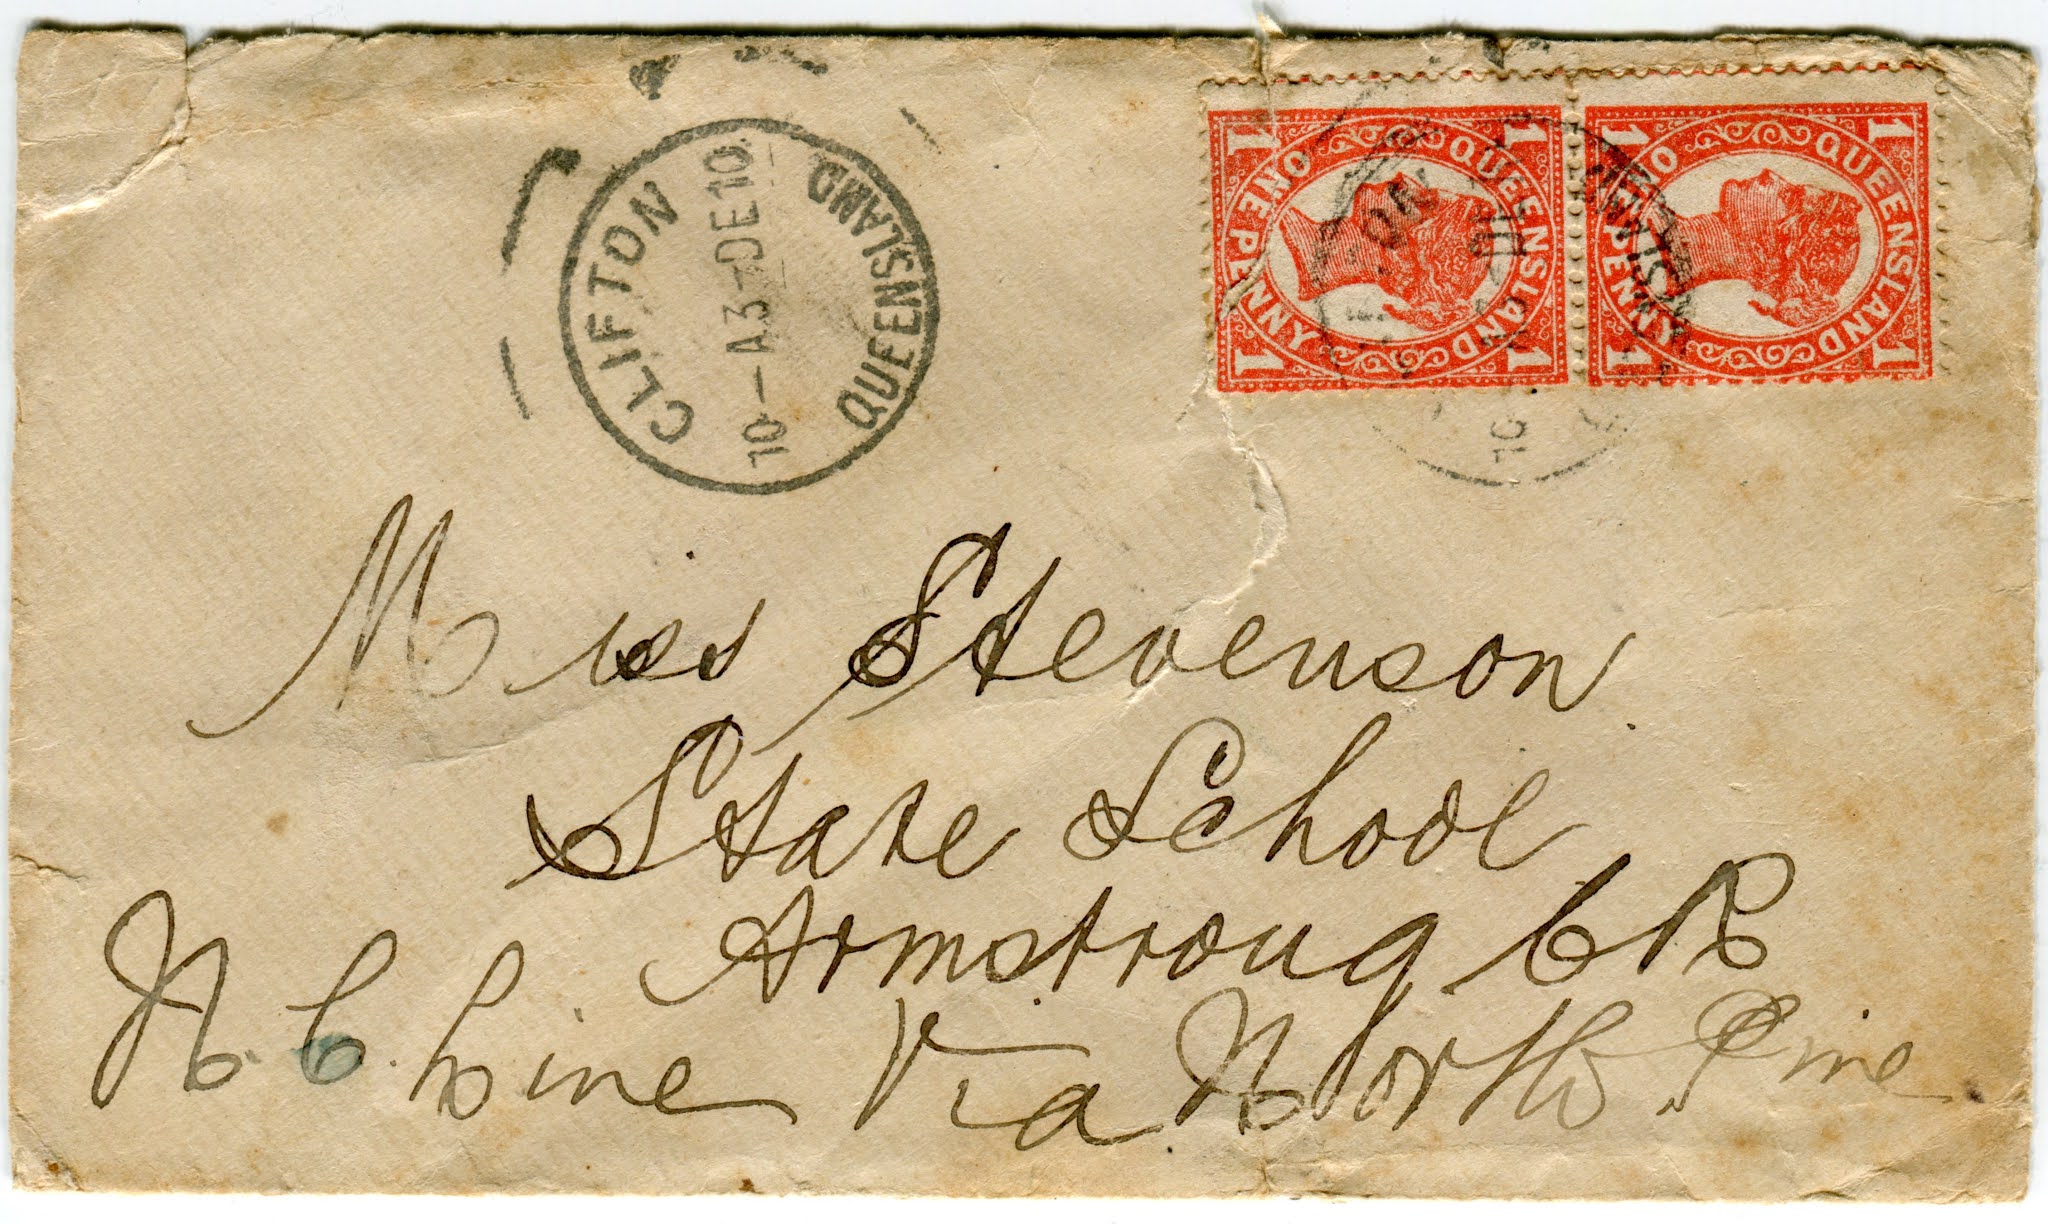 CLIFTON
10 - A 3 - DE 10
QUEENSLAND
QUEENSLAND
ONE PENNY
1 1 1 1
QUEENSLAND
ONE PENNY
1 1 1 1
Miss Stevenson
State School
Armstrong Ck
N. C. Line Via North Pine